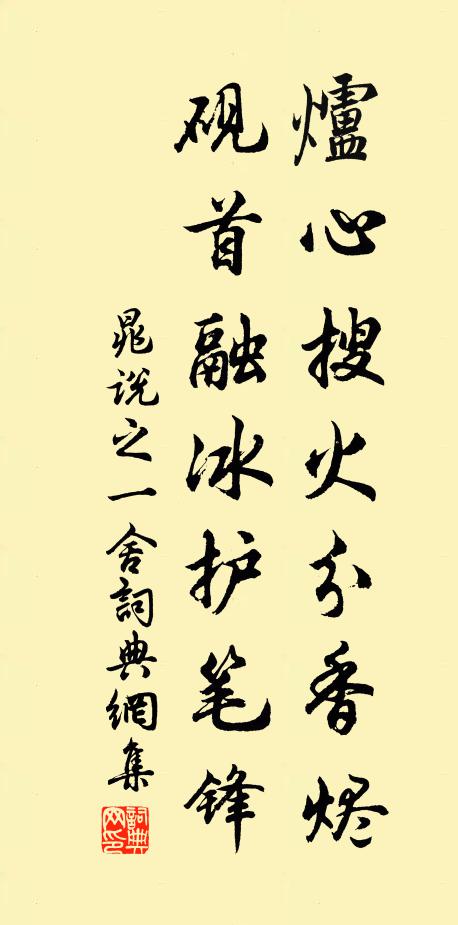 爐心搜火分香烬
砚首融冰护笔锋
晁说之一舍詞典網集
詞典
网印